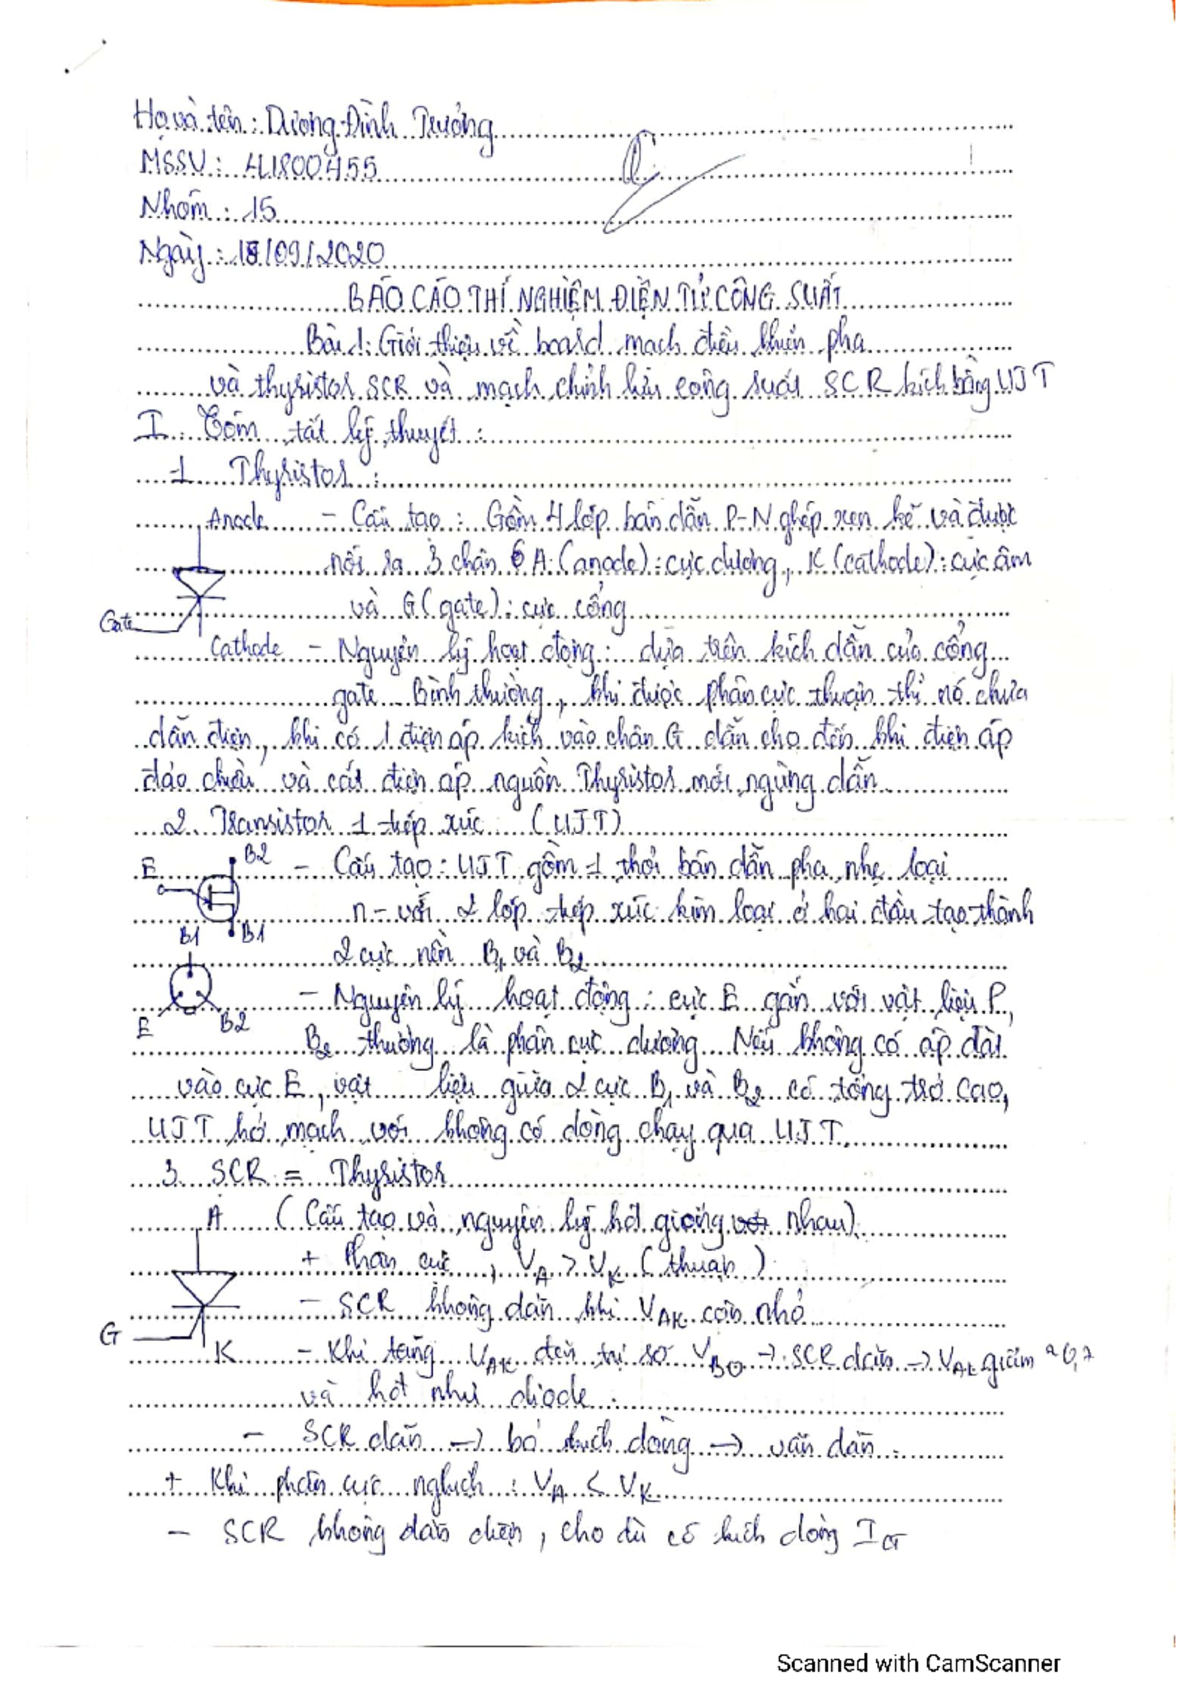 Họ và tên : Dương Đình Trưởng
MSSV : 41800455
Nhóm : 15
Ngày : 18/09/2020
BÁO CÁO THÍ NGHIỆM ĐIỆN TỬ CÔNG SUẤT
Bài 1: Giới thiệu về board mạch điều khiển pha
và thyristor SCR và mạch chỉnh lưu công suất SCR kích bằng UJT
I. Tóm tắt lý thuyết :
1 Thyristor :
Anode - Cấu tạo : Gồm 4 lớp bán dẫn P-N ghép xen kẽ và được
nối ra 3 chân A (anode) : cực dương, K (cathode) : cực âm
và G (gate) : cực cổng
Gate
Cathode - Nguyên lý hoạt động : dựa trên kích dẫn của cổng
gate. Bình thường, khi được phân cực thuận thì nó chưa
dẫn điện, khi có 1 điện áp kích vào chân G dẫn cho đến khi điện áp
đảo chiều và cắt điện áp nguồn Thyristor mới ngừng dẫn
2. Transistor 1 tiếp xúc (UJT)
E B2 - Cấu tạo : UJT gồm 1 thỏi bán dẫn pha nhẹ loại
n- với 2 lớp tiếp xúc kim loại ở hai đầu tạo thành
B1 B1
2 cực nền B1 và B2
- Nguyên lý hoạt động : cực E gắn với vật liệu P,
E B2
B2 thường là phân cực dương. Nếu không có áp đặt
vào cực E, vật liệu giữa 2 cực B1 và B2 có tổng trở cao,
UJT hở mạch với không có dòng chạy qua UJT.
3. SCR = Thyristor
A (Cấu tạo và nguyên lý hđ giống nhau)
+ Phân cực , VA > VK (thuận)
- SCR không dẫn khi VAK còn nhỏ
G
K - Khi tăng VAK đến trị số VBO → SCR dẫn → VAK giảm ~ 0,7
và hđ như diode.
- SCR dẫn → bỏ kích dòng → vẫn dẫn.
+ Khi phân cực nghịch : VA < VK
- SCR không dẫn điện, cho dù có kích dòng IG
Scanned with CamScanner